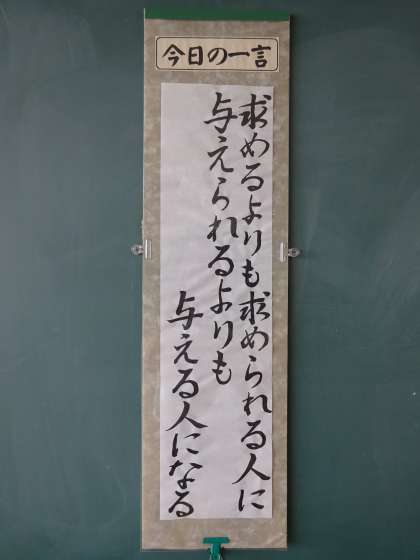 今日の一言
求めるよりも求められる人に
与えられるよりも
与える人になる